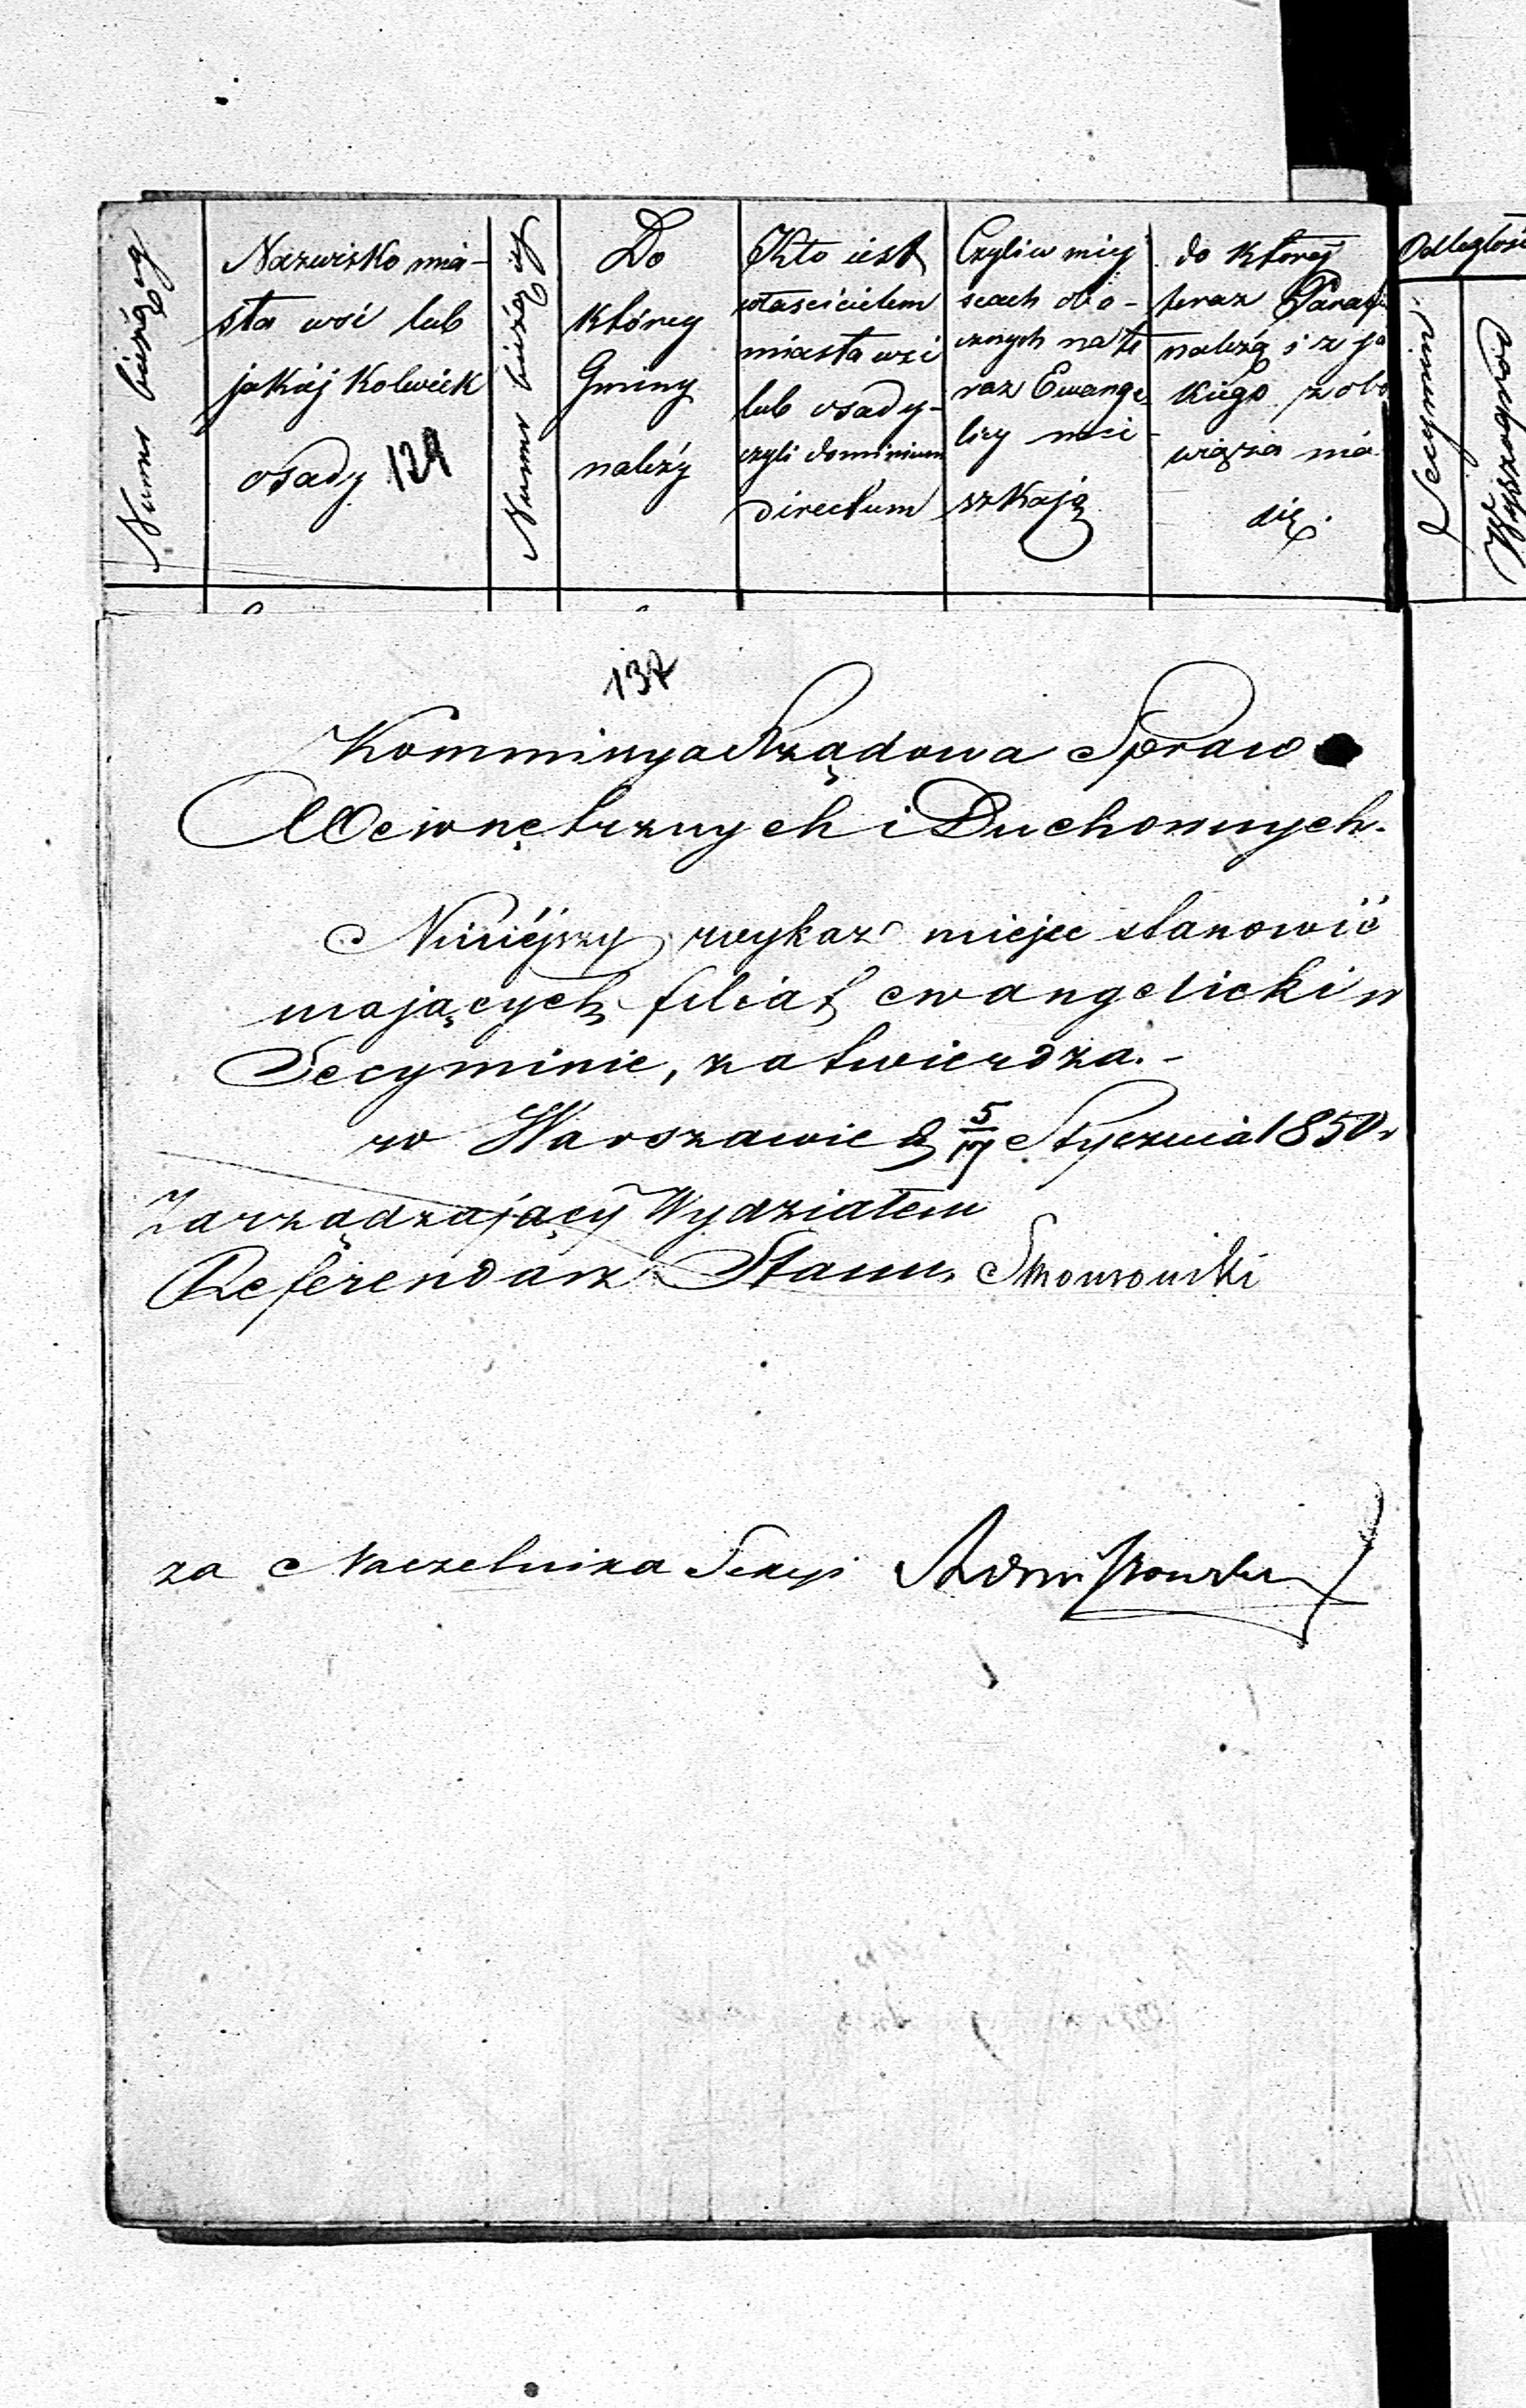 Numer bieżący
Nazwisko mia-
sta wsi lub
jakiej kolwiek
osady 129
Numer bieżący
Do
którey
Gminy
należy
Kto iest
właścicielem
miasta wsi
lub osady-
czyli dominium
directum
Czyli w miey
scach obo-
cznych na te
raz Ewange-
licy mie-
szkają
do któréj
teraz Parafii
należą i z ja
kiego zobo
wiązania
się.
Odległość
Secymin.
Wyszogród
137
Kommissya Rządowa Spraw
Wewnętrznych i Duchownych.
Niniéjszy wykaz miejsc stanowić
mających filiał ewangelicki w
Secyminie, zatwierdza.-
w Warszawie d 5/17 Stycznia 1850 r
Zarządzający Wydziałem
Referendarz Stanu
za Naczelnika Sekcyi